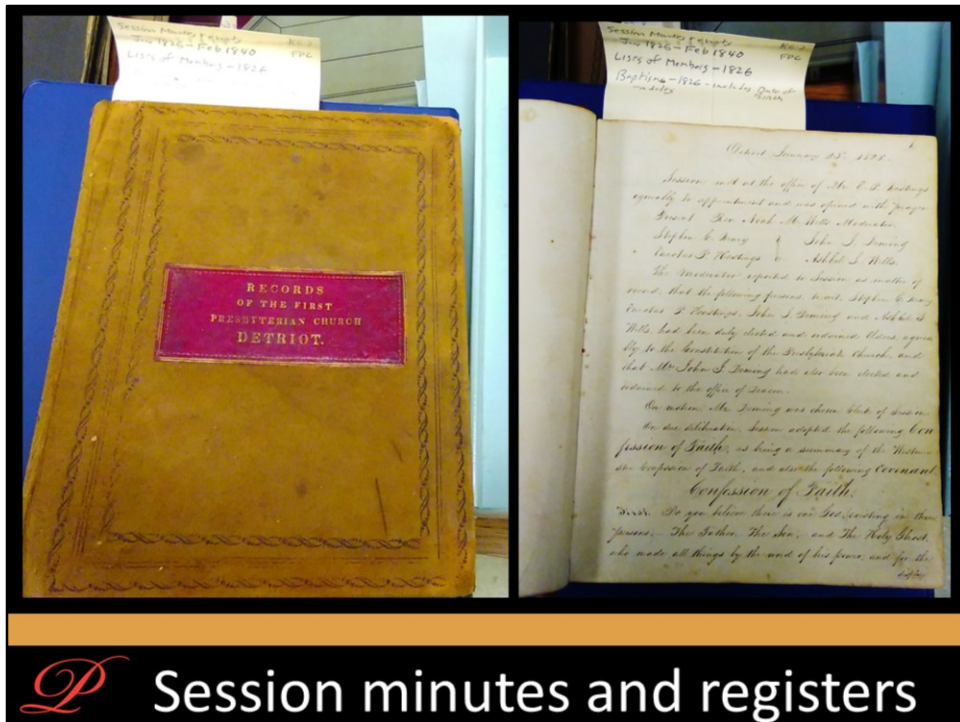 Session Minutes
Jan 1826 - Feb 1840
FPC
Lists of Members - 1826
RECORDS
OF THE FIRST
PRESBYTERIAN CHURCH
DETRIOT.
Session Minutes
Jan 1826 - Feb 1840
FPC
Lists of Members - 1826
Baptisms - 1826 - includes Date of
Birth
Detroit January
Session met at the office of Mr. E. P. Hastings
agreeably to appointment and was opened with prayer
Present Rev. Noah M. Wells Moderator
Stephen C. Henry & John J. Deming
Eurotas P. Hastings Ashbel S. Wells.
The Moderator reported to Session as matter of
record, that the following persons, to wit, Stephen C. Henry
Eurotas P. Hastings, John J. Deming and Ashbel S.
Wells, had been duly elected and ordained Elders, agreea
bly to the Constitution of the Presbyterian Church, and
that John J. Deming had also been elected and
ordained to the office of Deacon.
On motion Mr. Deming was chosen Clerk of Session.
On due deliberation Session adopted the following Con
fession of Faith, as being a summary of the Westmin
ster Confession of Faith, and also the following Covenant
Confession of Faith.
First. Do you believe there is one God, existing in three
persons, The Father, The Son, and The Holy Ghost,
who made all things by the word of his power, and for the
P Session minutes and registers